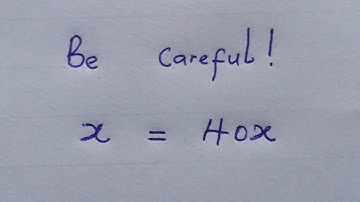 Be careful!
x = 40x